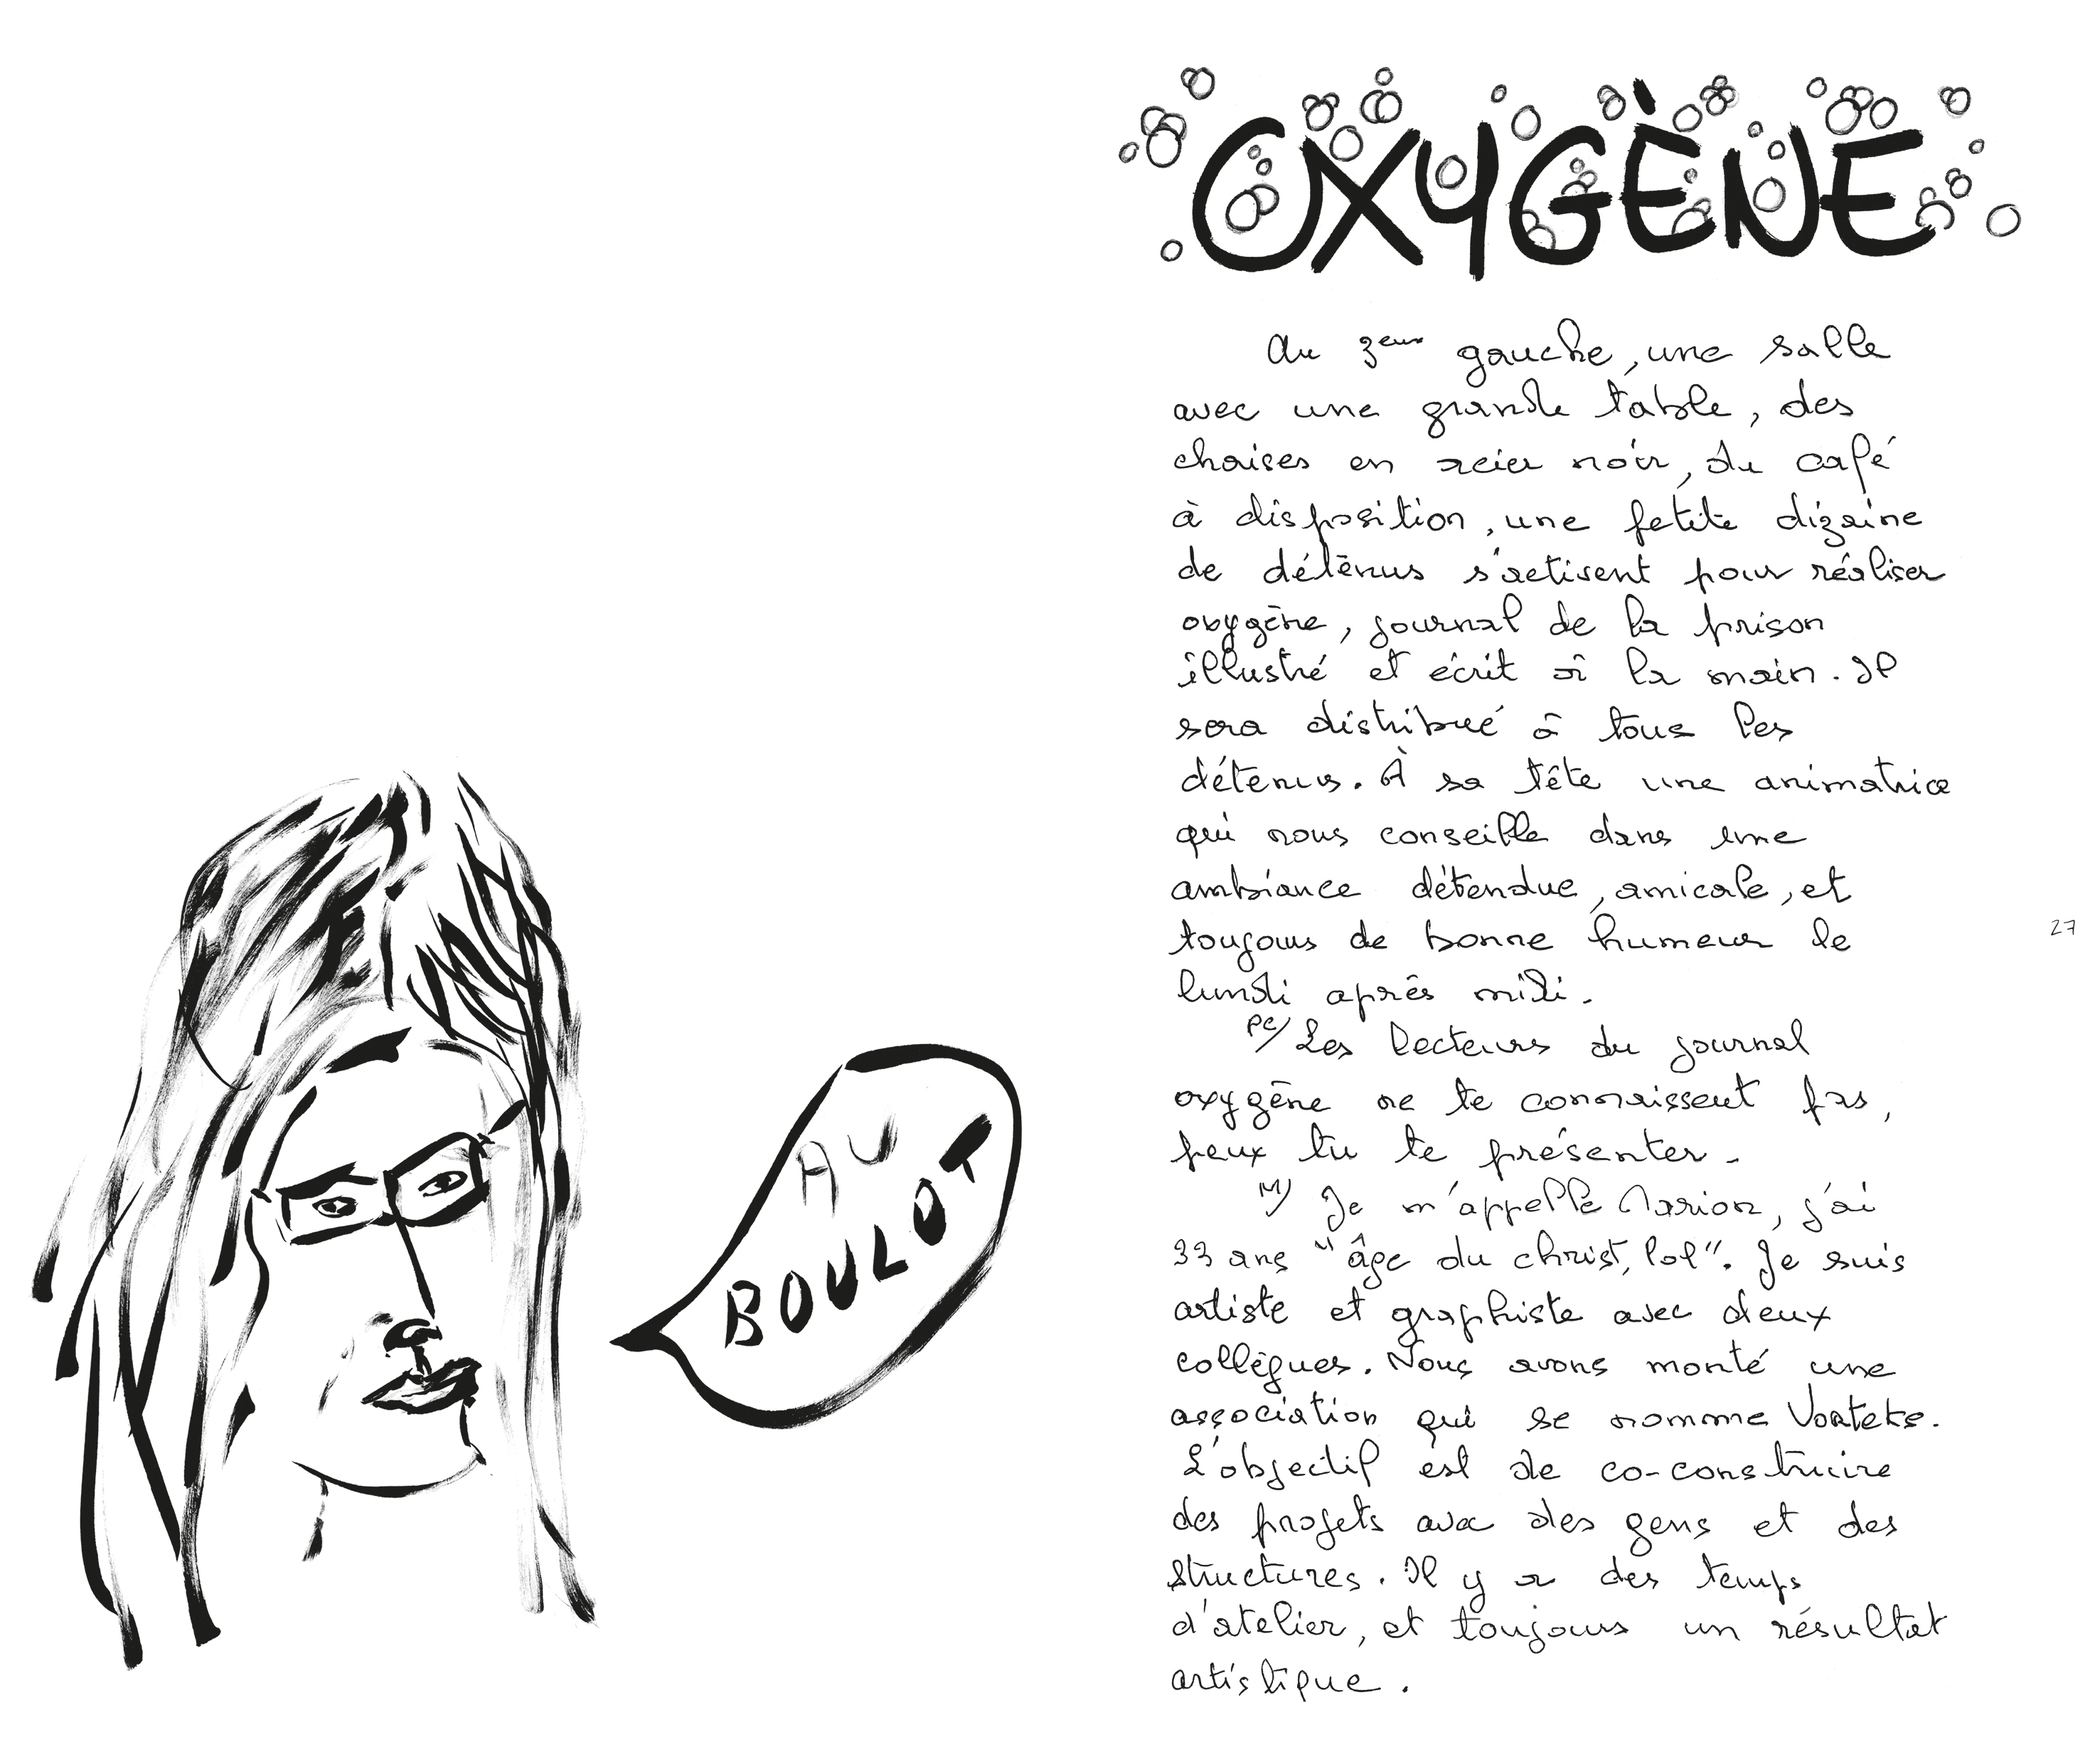 AU
BOULOT
OXYGÈNE
Au 3eme gauche, une salle
avec une grande table, des
chaises en acier noir, du café
à disposition, une petite dizaine
de détenus s'activent pour réaliser
oxygène, journal de la prison
illustré et écrit à la main. Il
sera distribué à tous les
détenus. À sa tête une animatrice
qui nous conseille dans une
ambiance détendue, amicale, et
toujours de bonne humeur le
lundi après midi.
PC/ Les lecteurs du journal
oxygène ne te connaissent pas,
peux tu te présenter.
M/ Je m'appelle Marion, j'ai
33 ans "âge du christ, lol". Je suis
artiste et graphiste avec deux
collègues. Nous avons monté une
association qui se nomme Vorteks.
L'objectif est de co-construire
des projets avec des gens et des
structures. Il y a des temps
d'atelier, et toujours un résultat
artistique.
27